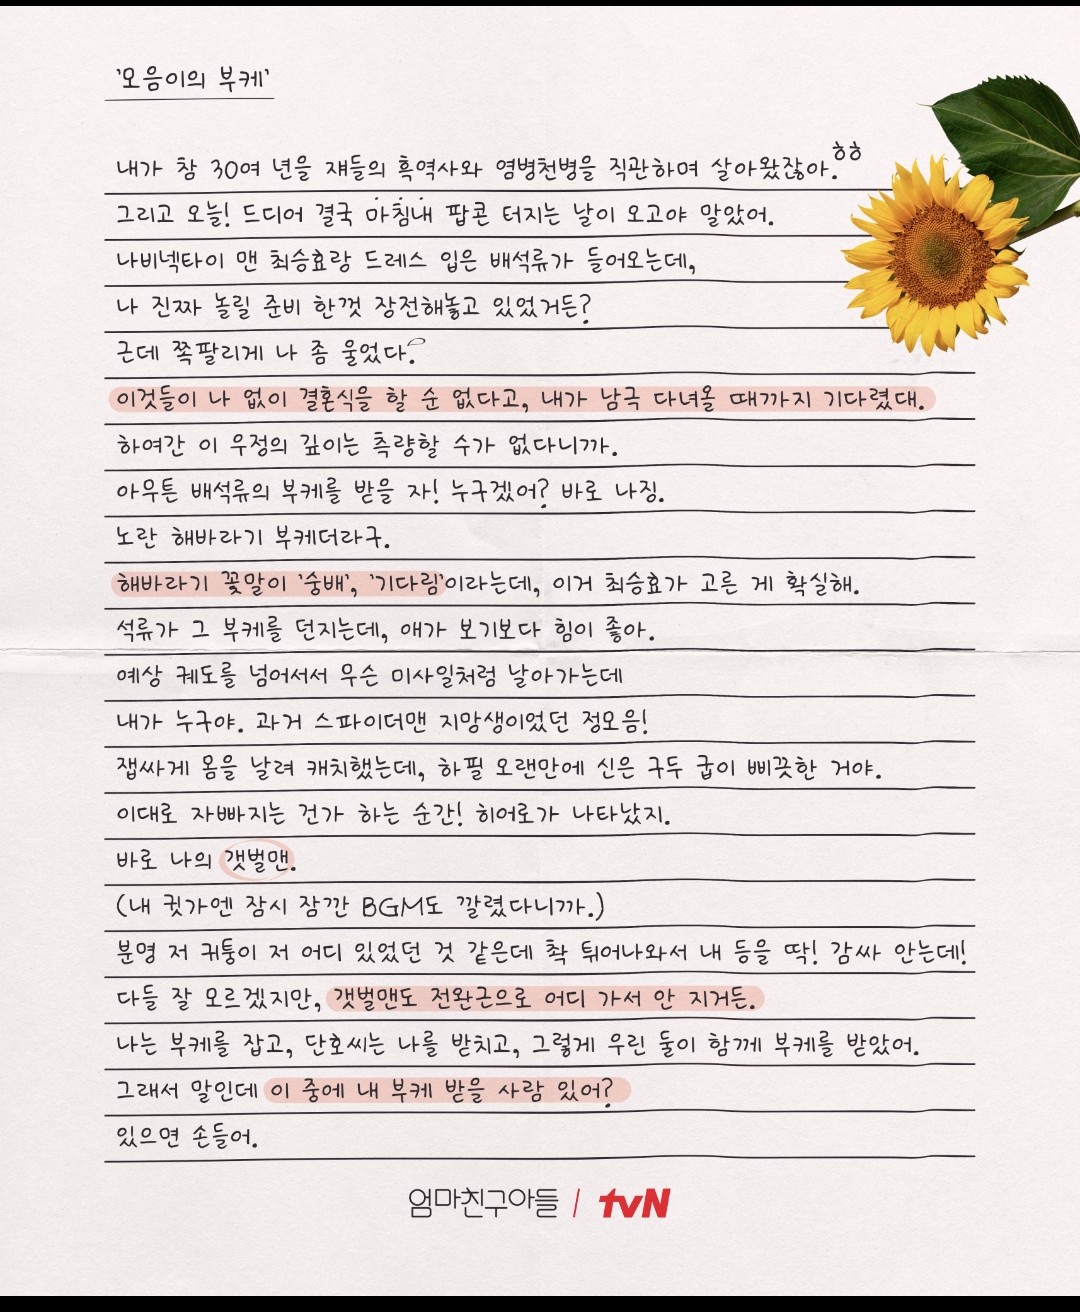 '모음이의 부케'
내가 참 30여 년을 쟤들의 흑역사와 염병천병을 직관하며 살아왔잖아.ㅎㅎ
그리고 오늘! 드디어 결국 마침내 팝콘 터지는 날이 오고야 말았어.
나비넥타이 맨 최승효랑 드레스 입은 배석류가 들어오는데,
나 진짜 놀릴 준비 한껏 장전해놓고 있었거든?
근데 쪽팔리게 나 좀 울었다.
이것들이 나 없이 결혼식을 할 순 없다고, 내가 남극 다녀올 때까지 기다렸대.
하여간 이 우정의 깊이는 측량할 수가 없다니까.
아무튼 배석류의 부케를 받을 자! 누구겠어? 바로 나징.
노란 해바라기 부케더라구.
해바라기 꽃말이 '숭배', '기다림'이라는데, 이거 최승효가 고른 게 확실해.
석류가 그 부케를 던지는데, 얘가 보기보다 힘이 좋아.
예상 궤도를 넘어서서 무슨 미사일처럼 날아가는데
내가 누구야. 과거 스파이더맨 지망생이었던 정모음!
잽싸게 몸을 날려 캐치했는데, 하필 오랜만에 신은 구두 굽이 삐끗한 거야.
이대로 자빠지는 건가 하는 순간! 히어로가 나타났지.
바로 나의 갯벌맨.
(내 귓가엔 잠시 잠깐 BGM도 깔렸다니까.)
분명 저 귀퉁이 저 어디 있었던 것 같은데 촥 튀어나와서 내 등을 딱! 감싸 안는데!
다들 잘 모르겠지만, 갯벌맨도 전완근으로 어디 가서 안 지거든.
나는 부케를 잡고, 단호씨는 나를 받치고, 그렇게 우린 둘이 함께 부케를 받았어.
그래서 말인데 이 중에 내 부케 받을 사람 있어?
있으면 손들어.
엄마친구아들 / tvN